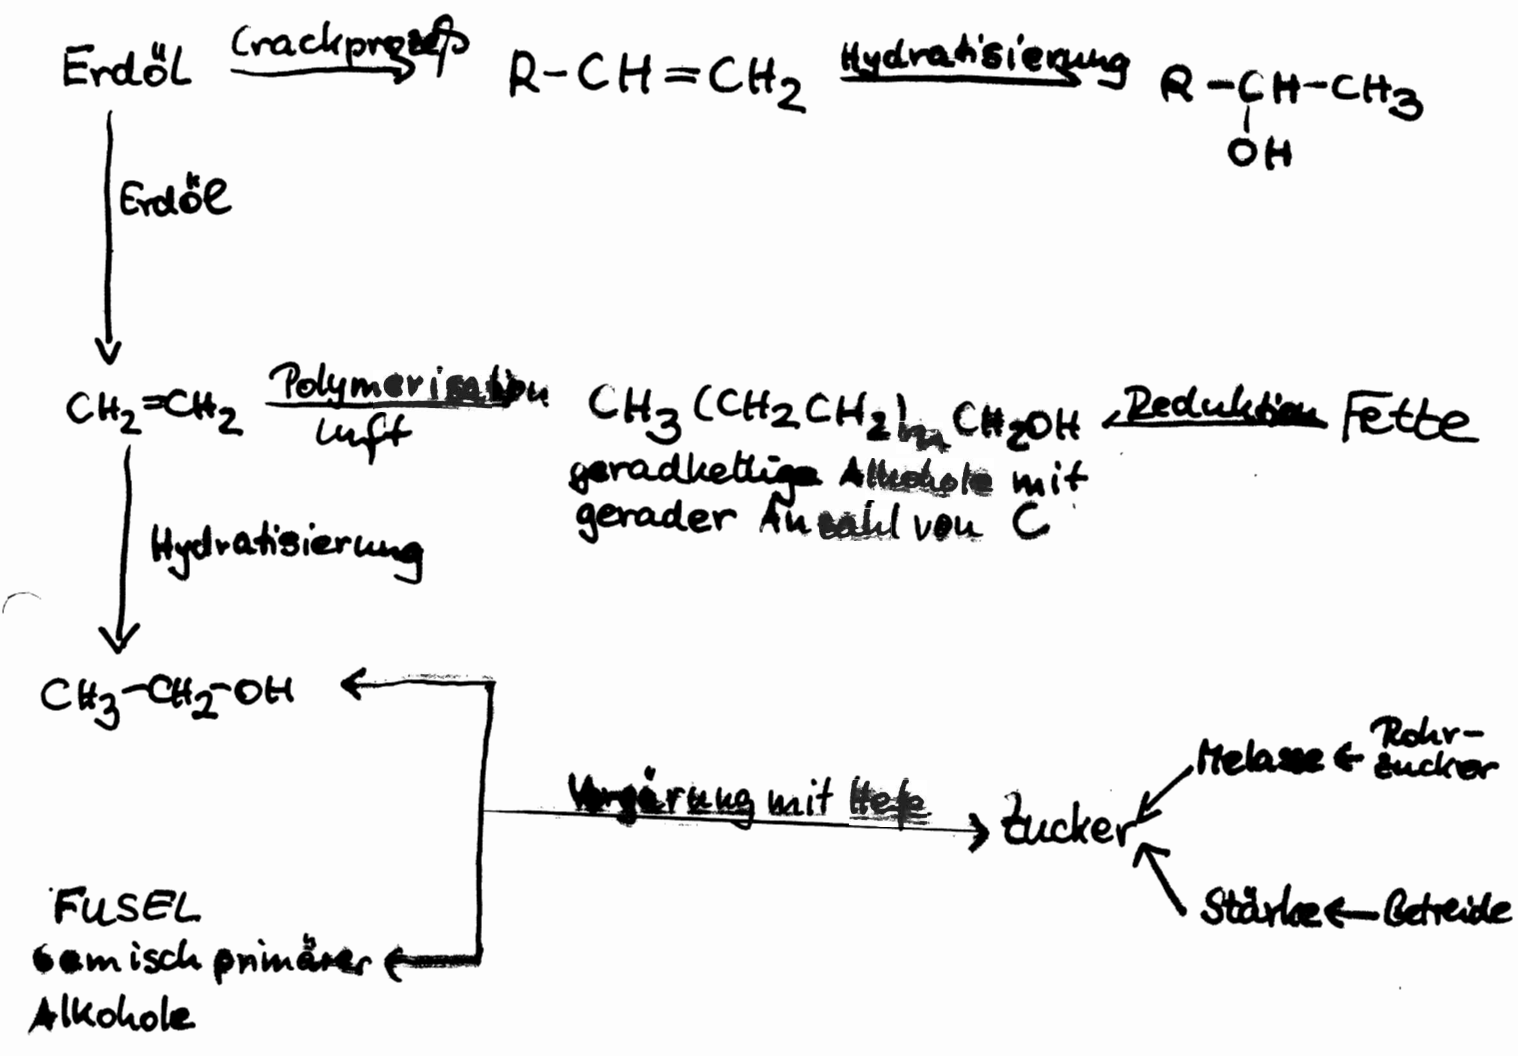 Erdöl Crackprozeß R-CH=CH2 Hydratisierung R-CH-CH3
OH
Erdöl
CH2=CH2 Polymerisation CH3(CH2CH2)n CH2OH Reduktion Fette
Luft
geradkettige Alkohole mit
gerader Anzahl von C
Hydratisierung
CH3-CH2-OH
Rohr-
Melasse zucker
Vergärung mit Hefe Zucker
FUSEL
Stärke Getreide
Gemisch primärer
Alkohole